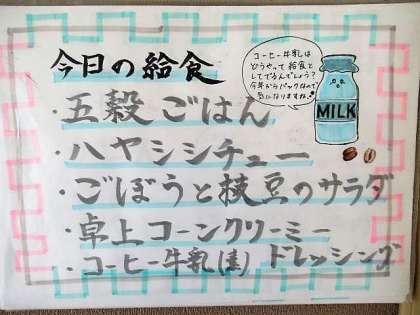 今日の給食
コーヒー牛乳は
どうやって給食と
してでるんでしょう?
今年からパックなので
気になりますね!
MILK
・五穀ごはん
・ハヤシシチュー
・ごぼうと枝豆のサラダ
・卓上コーンクリーミー
ドレッシング
・コーヒー牛乳